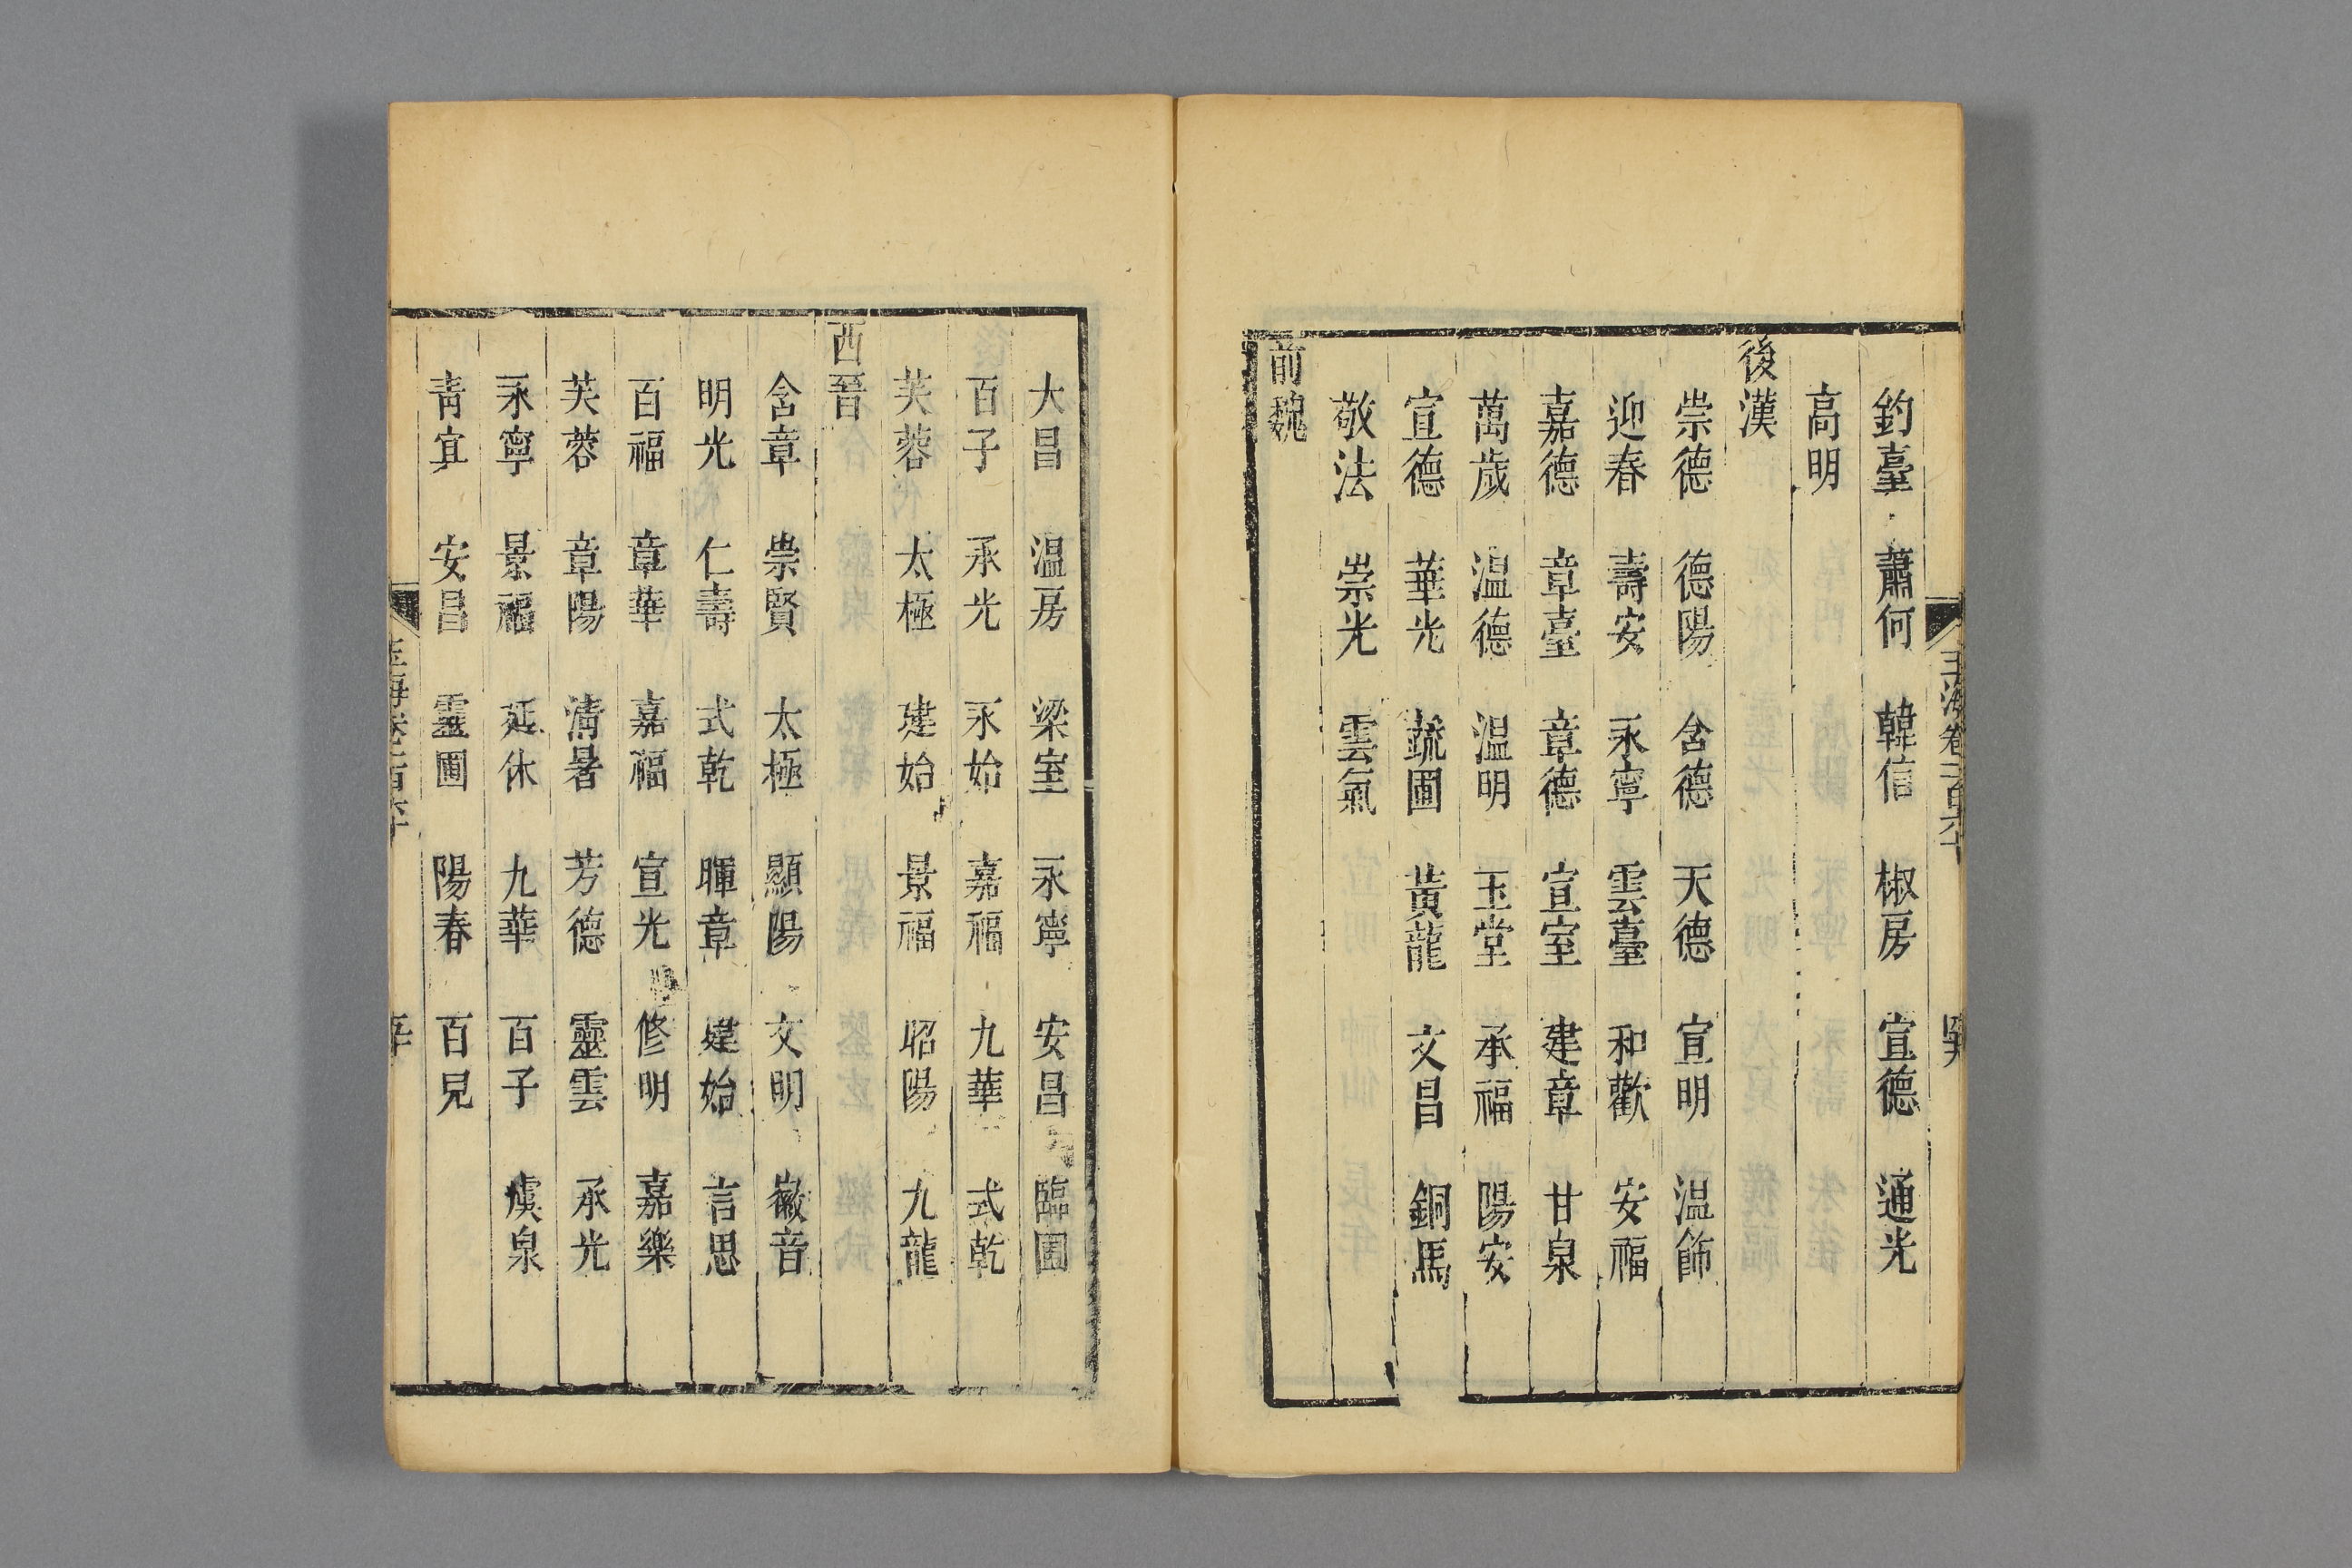 釣臺 蕭何 韓信 椒房 宣德 通光
高明
後漢
崇德 德陽 含德 天德 宣明 温飾
迎春 壽安 永寧 雲臺 和歡 安福
嘉德 章臺 章德 宣室 建章 甘泉
萬歲 温德 温明 玉堂 承福 陽安
宣德 華光 蔬圃 黃龍 文昌 銅馬
敬法 崇光 雲氣
前魏
大昌 温房 梁室 永寧 安昌 臨圃
百子 承光 永始 嘉福 九華 式乾
芙蓉 太極 建始 景福 昭陽 九龍
西晉
含章 崇賢 太極 顯陽 文明 徽音
明光 仁壽 式乾 暉章 建始 言思
百福 章華 嘉福 宣光 修明 嘉樂
芙蓉 章陽 清暑 芳德 靈雲 承光
永寧 景福 延休 九華 百子 虞泉
青宜 安昌 靈圃 陽春 百兒